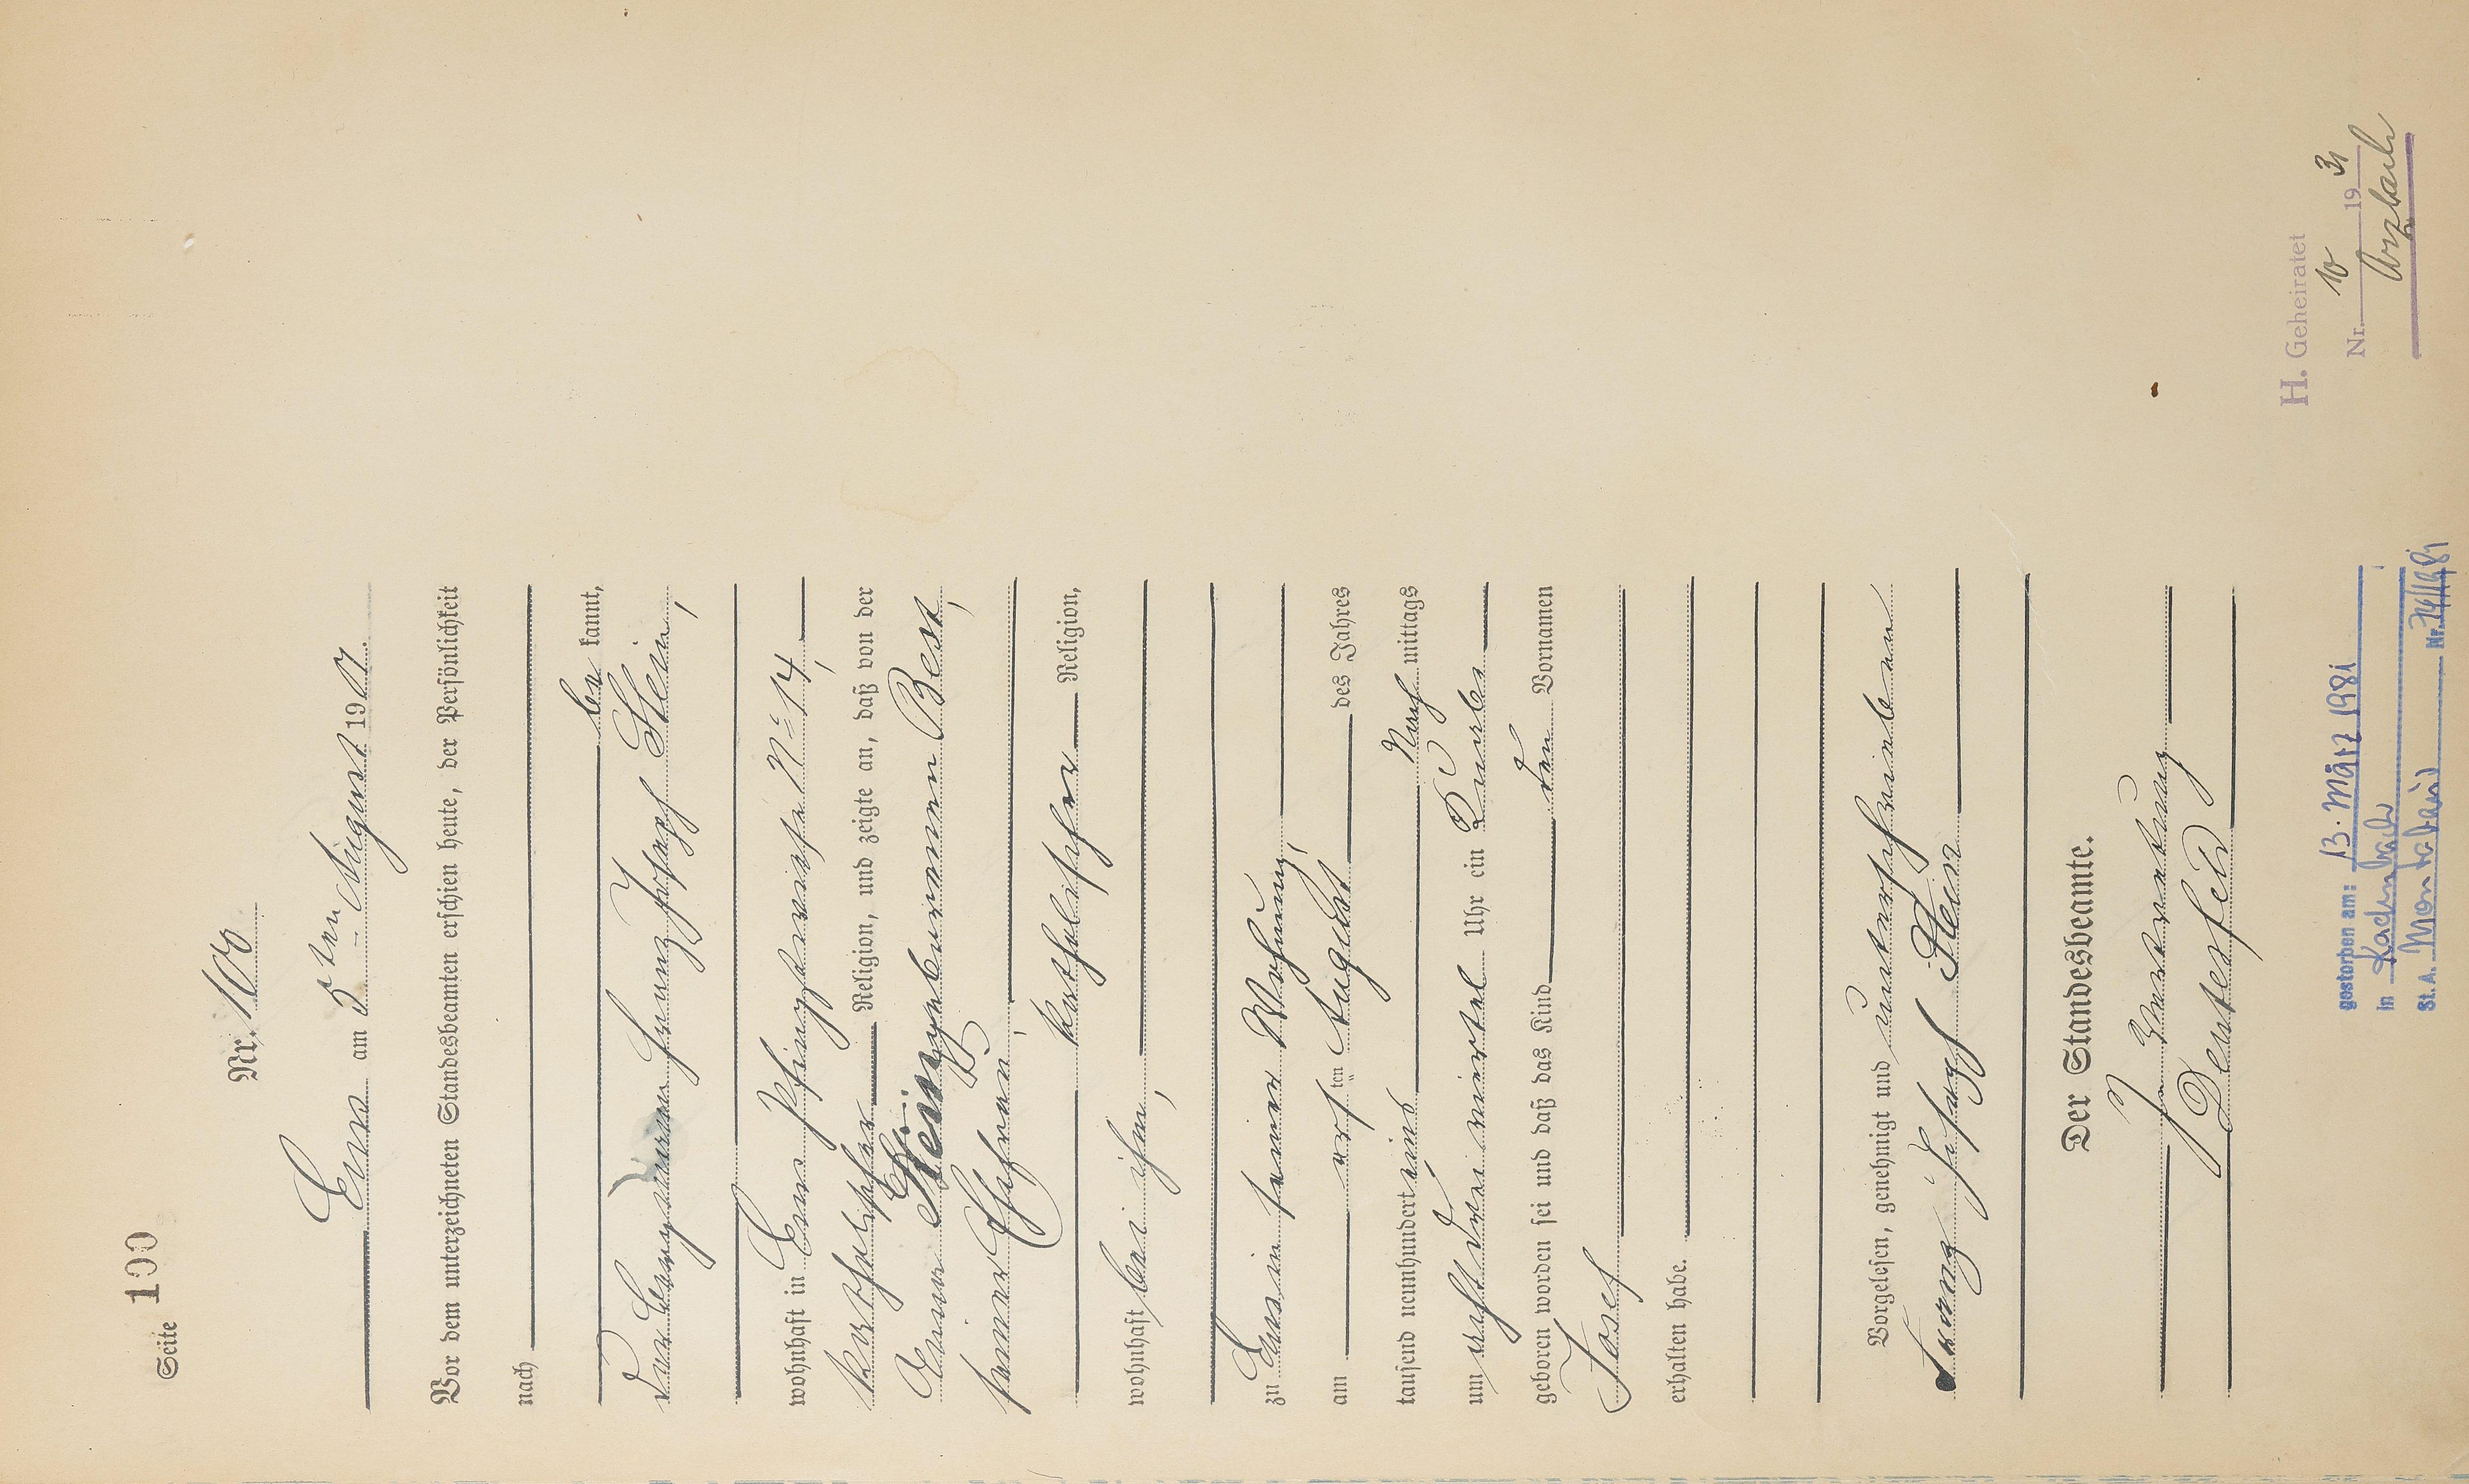 Seite 100
Nr. 108
Ems am 5ten August 1901.
Vor dem unterzeichneten Standesbeamten erschien heute, der Persönlichkeit
nach
be kannt,
der Bergmann Franz Joseph Stein,
wohnhaft in Ems Pfingstwiese No 14,
katholischer Religion, und zeigte an, daß von der
Stein geborenen Best,
seiner Ehefrau,
katholischer Religion,
wohnhaft bei ihm,
zu Ems in seiner Wohnung,
am ersten August des Jahres
tausend neunhundert eins Nach mittags
um acht drei viertel Uhr ein Knabe
geboren worden sei und daß das Kind den Vornamen
Josef
erhalten habe.
Vorgelesen, genehmigt und unterschrieben
Franz Josepf Stein
Der Standesbeamte.
In Vertretung
Deutesfeld
gestorben am: 13. März 1981
in Kadenbach
St. A. Montabaur Nr. 74/1981
H. Geheiratet
Nr. 10 1931
Arzbach